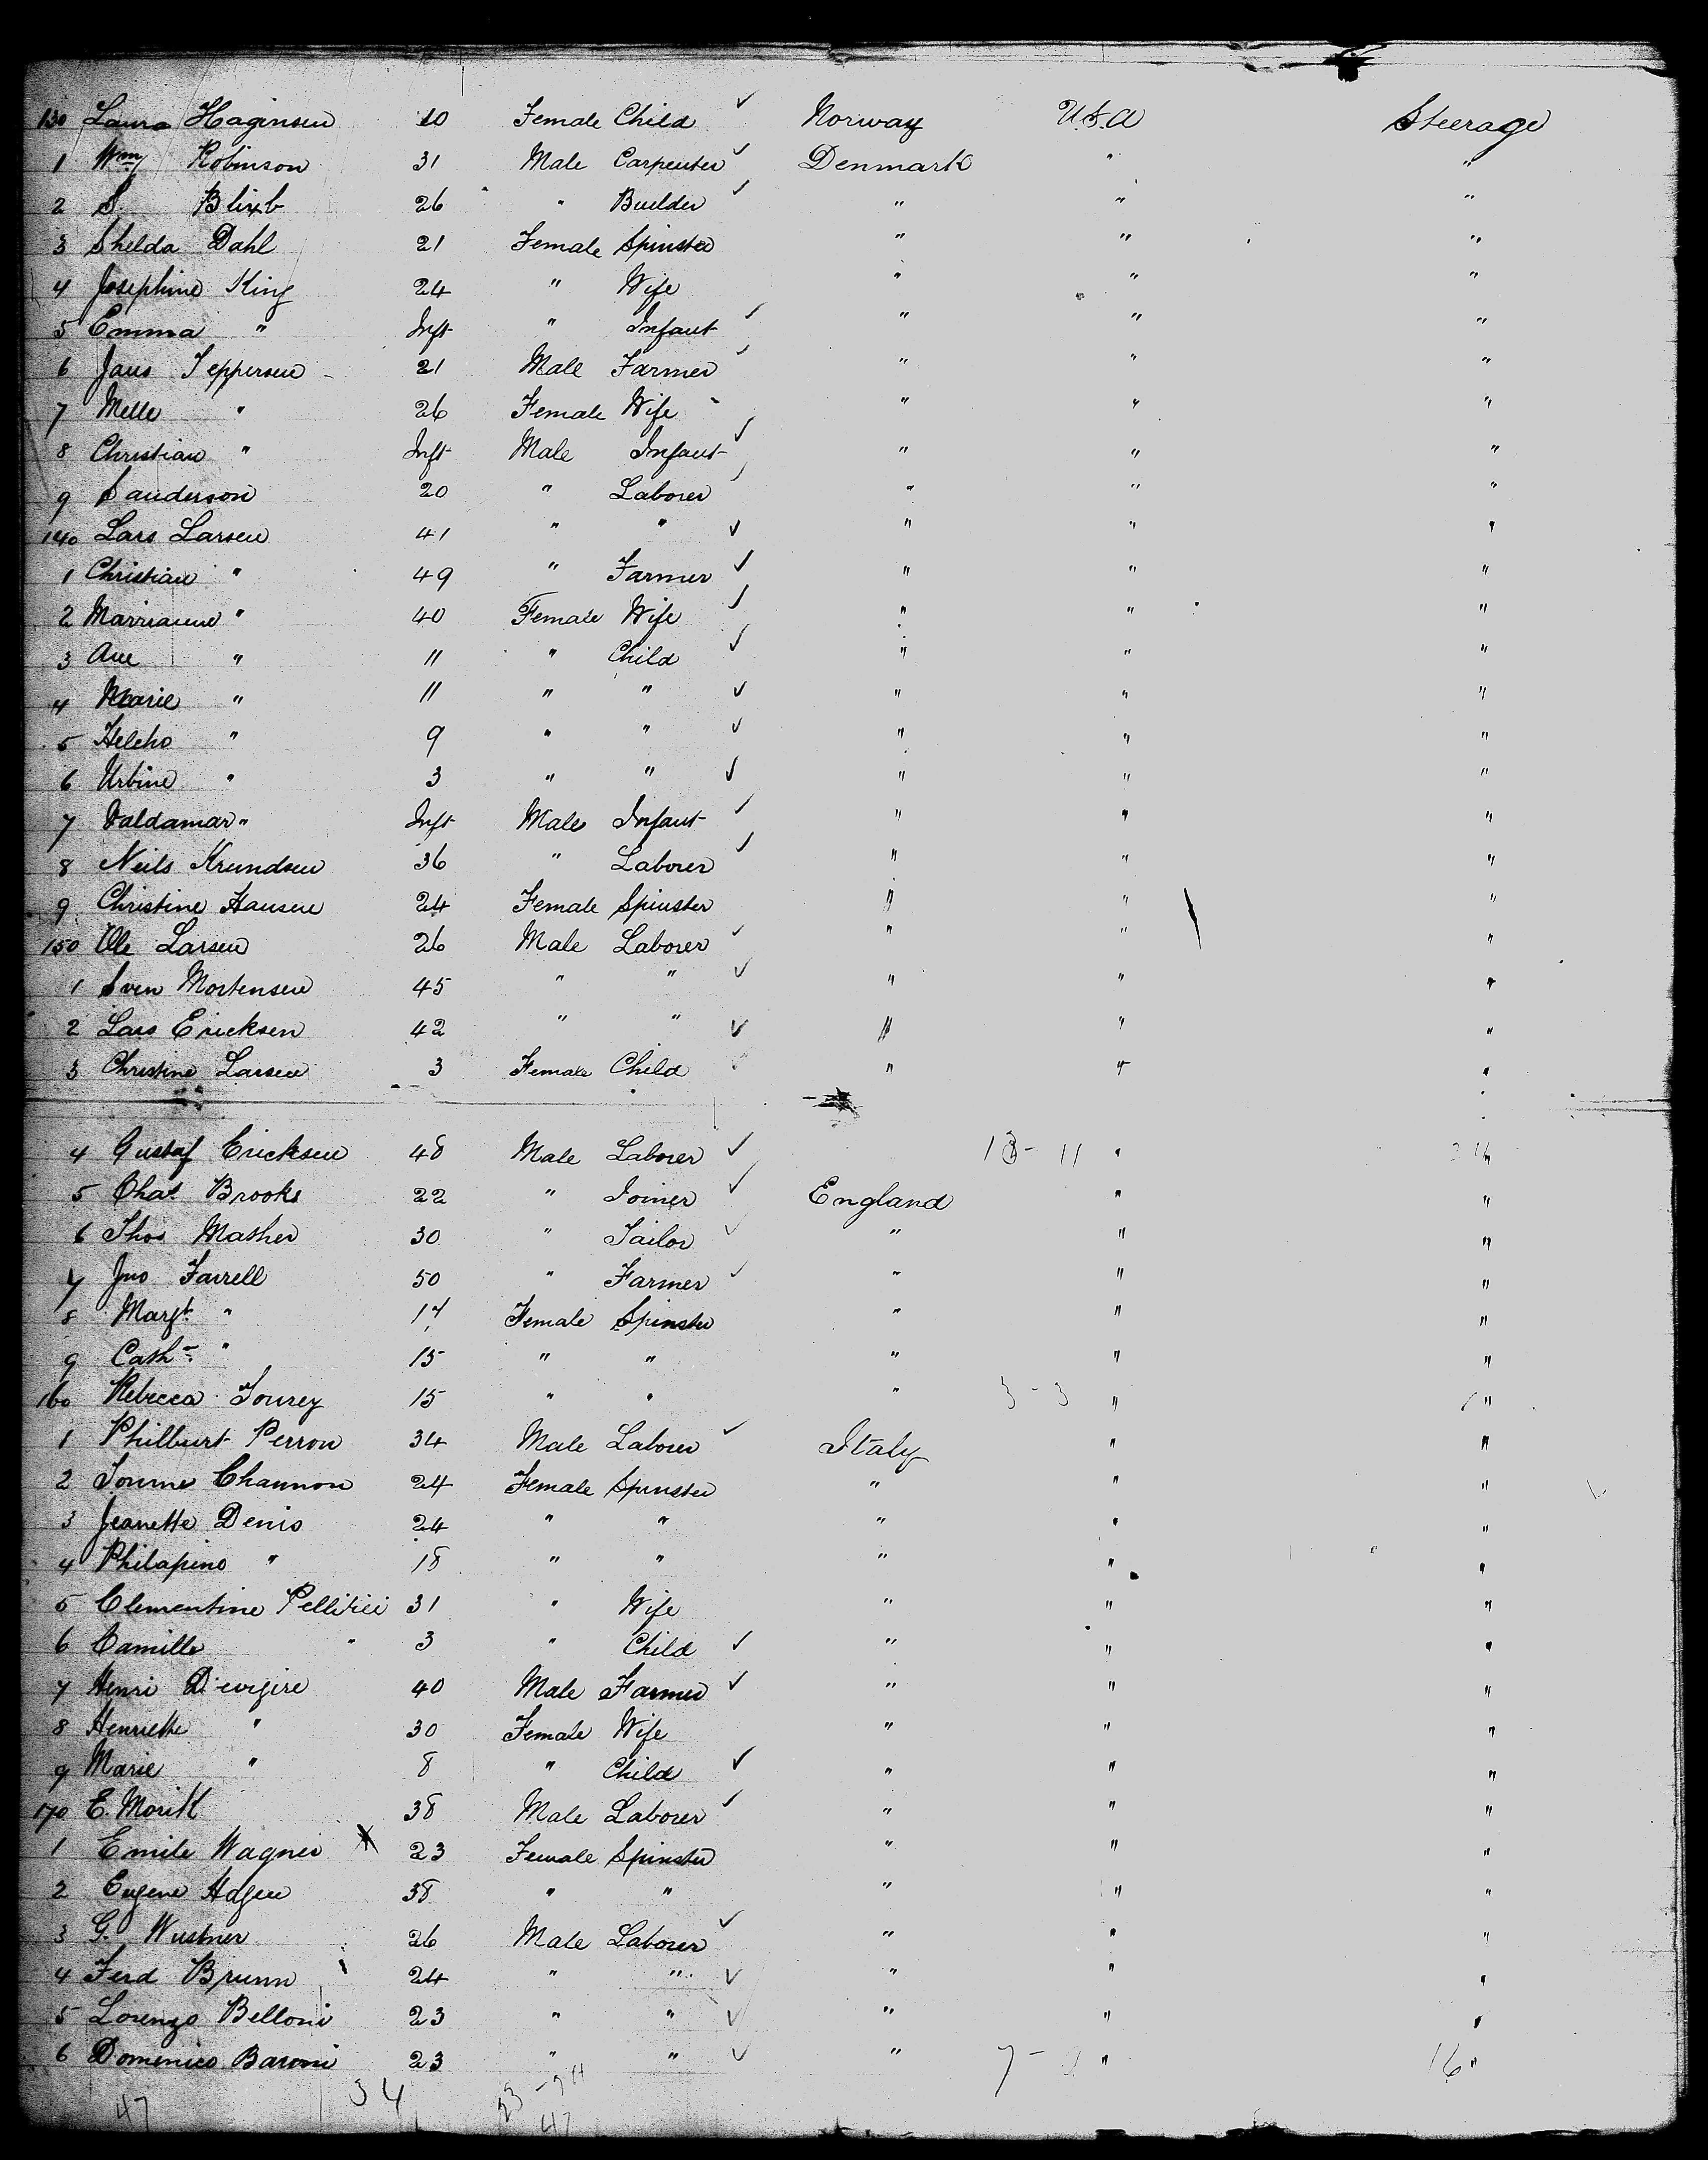 130 Laura Haginsen 10 Female Child ✓ Norway U.S.A Steerage
1 Wm Robinson 31 Male Carpenter ✓ Denmark " "
2 S. Blixb 26 " Builder ✓ " " "
3 Shelda Dahl 21 Female Spinster " " "
4 Josephine King 24 " Wife " " "
5 Emma " Inft " Infant ✓ " " "
6 Jans Jeppersen 21 Male Farmer ✓ " " "
7 Melle " 26 Female Wife " " "
8 Christian " Inft Male Infant ✓ " " "
9 Sanderson 20 " Laborer ✓ " " "
140 Lars Larsen 41 " " ✓ " " "
1 Christian " 49 " Farmer ✓ " " "
2 Marrianne " 40 Female Wife ✓ " " "
3 Ane " 11 " Child ✓ " " "
4 Marie " 11 " " ✓ " " "
5 Helcho " 9 " " ✓ " " "
6 Urbine " 3 " " ✓ " " "
7 Valdamar " Inft Male Infant ✓ " " "
8 Neils Krundsen 36 " Laborer ✓ " " "
9 Christine Hansen 24 Female Spinster " " "
150 Ole Larsen 26 Male Laborer ✓ " " "
1 Sven Mortensen 45 " " ✓ " " "
2 Lars Ericksen 42 " " ✓ " " "
3 Christine Larsen 3 Female Child ✓ " " "
4 Gustaf Ericksen 48 Male Laborer ✓ 13 - 11 " "
5 Chas. Brooks 22 " Joiner ✓ England " "
6 Thos Masher 30 " Tailor ✓ " " "
7 Jno Farrell 50 " Farmer ✓ " " "
8 Margt. " 17 Female Spinster " " "
9 Cath " 15 " " " " "
160 Rebecca Tourey 15 " " " 3 - 3 " "
1 Philburt Perron 34 Male Laborer ✓ Italy " "
2 Chaunon 24 Female Spinster " " "
3 Jeanette Denis 24 " " " " "
4 Philapino " 18 " " " " "
5 Clementine 31 " Wife " " "
6 Camille " 3 " Child ✓ " " "
7 Henri 40 Male Farmer ✓ " " "
8 Henriette " 30 Female Wife " " "
9 Marie " 8 " Child ✓ " " "
170 E. Morik 38 Male Laborer ✓ " " "
1 Emile Wagner 23 Female Spinster " " "
2 Eugene Hagen 38 " " " " "
3 G. Wustner 26 Male Laborer ✓ " " "
4 Ferd Brunn 24 " " ✓ " " "
5 Lorenzo Belloni 23 " " ✓ " " "
6 Domenico Baroni 23 " " ✓ " 7 - " 16 "
34 23 - 24
47 47